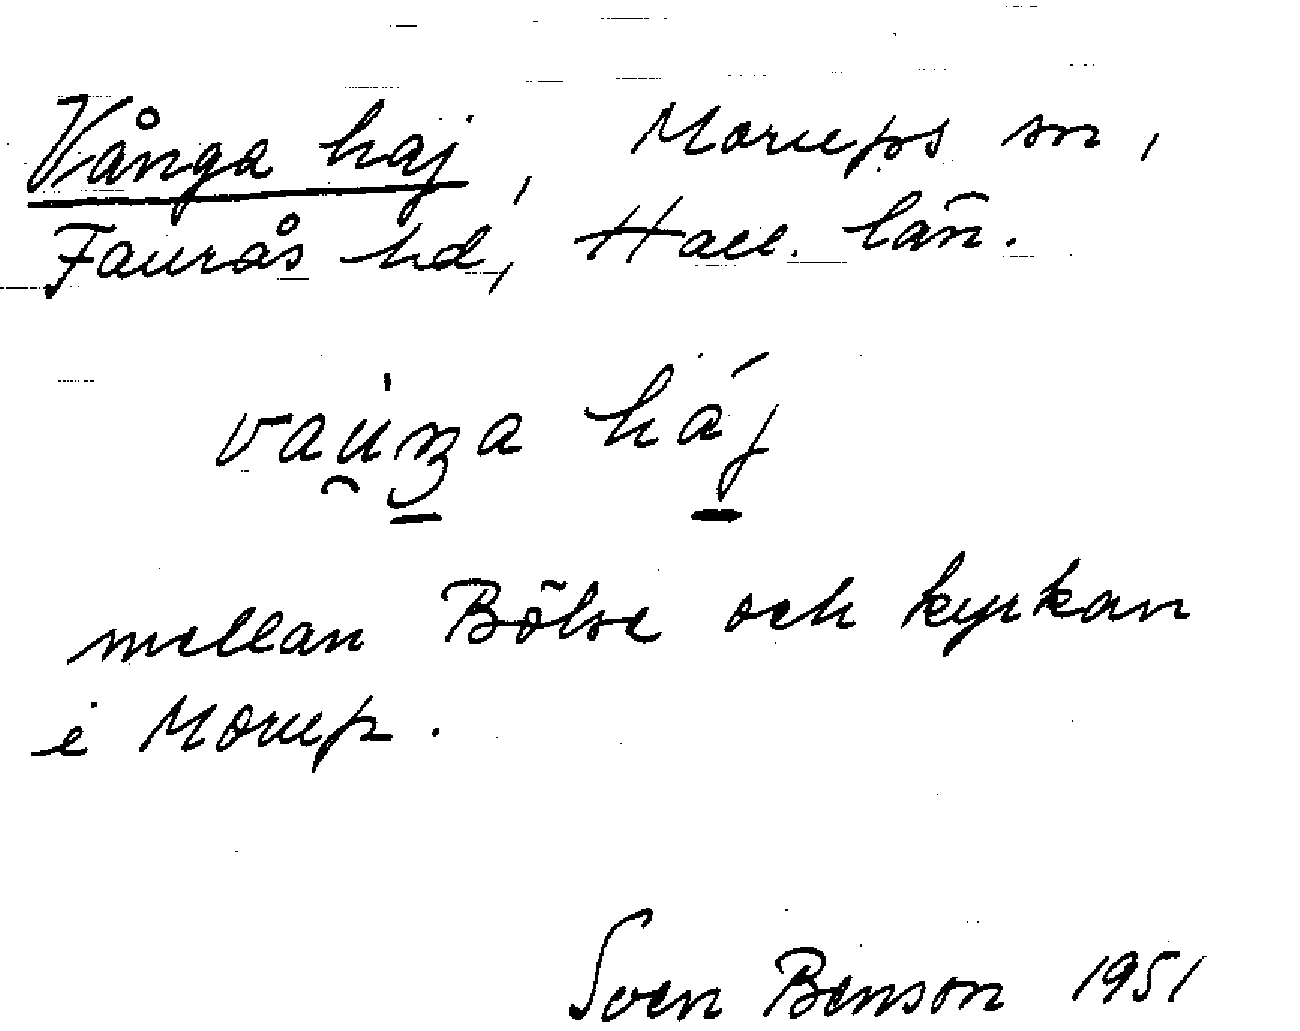 Vånga haj, Morups sn,
Faurås hd, Hall. län.
vau̯ŋa háj
mellan Bölse och kyrkan
i Morup.
Sven Benson 1951